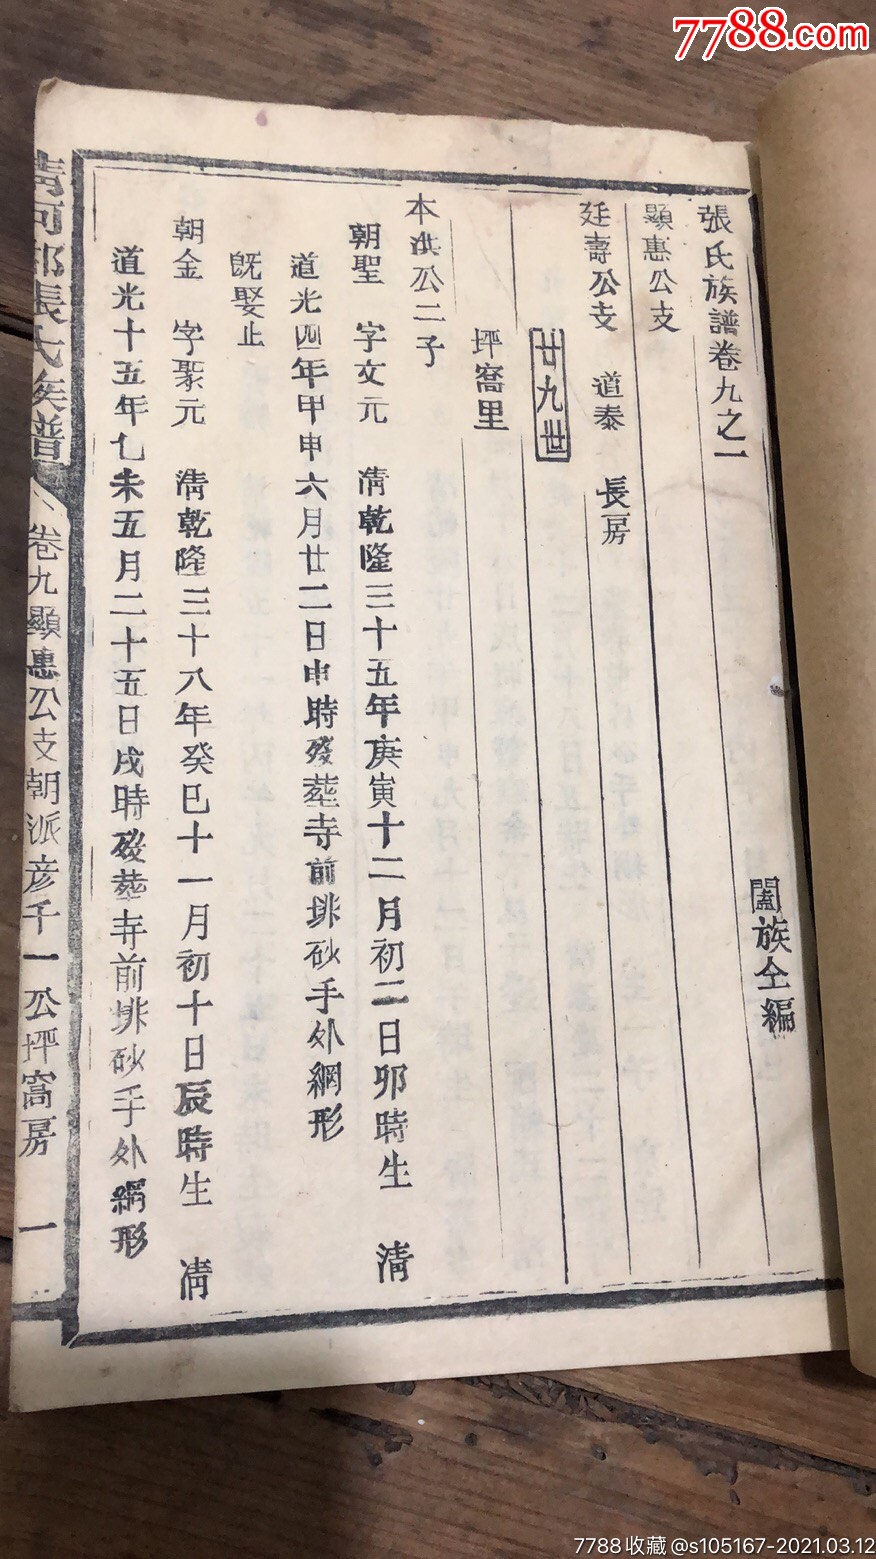 7788.com
張氏族譜卷九之一
闔族仝編
顯惠公支
廷壽公支 道泰 長房
廿九世
坪窩里
本洪公二子
朝聖 字文元 清乾隆三十五年庚寅十二月初二日卯時生 清
道光四年甲申六月廿二日申時歿塟寺前垹砂手外網形
旣娶止
朝金 字聚元 清乾隆三十八年癸巳十一月初十日辰時生 清
道光十五年乙未五月二十五日戌時歿塟寺前垹砂手外網形
清河郡張氏族譜
卷九顯惠公支朝派彦千一公坪窩房 一
7788收藏@s105167-2021.03.12